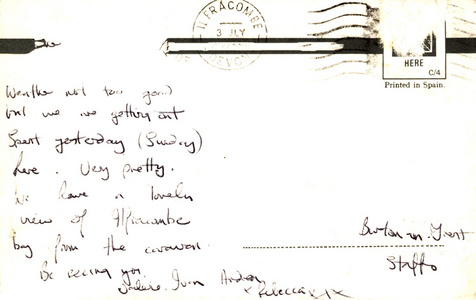 ILFRACOMBE
3 JLY
DEVON
HERE
C/4
Printed in Spain.
Weather not too good
but we are getting out
Spent yesterday (Sunday)
here. Very pretty.
We have a lovely
view of Ilfracombe
bay from the caravan.
Be seeing you
Ivan Andrew
x Rebecca x x
Burton-on-Trent
Staffs